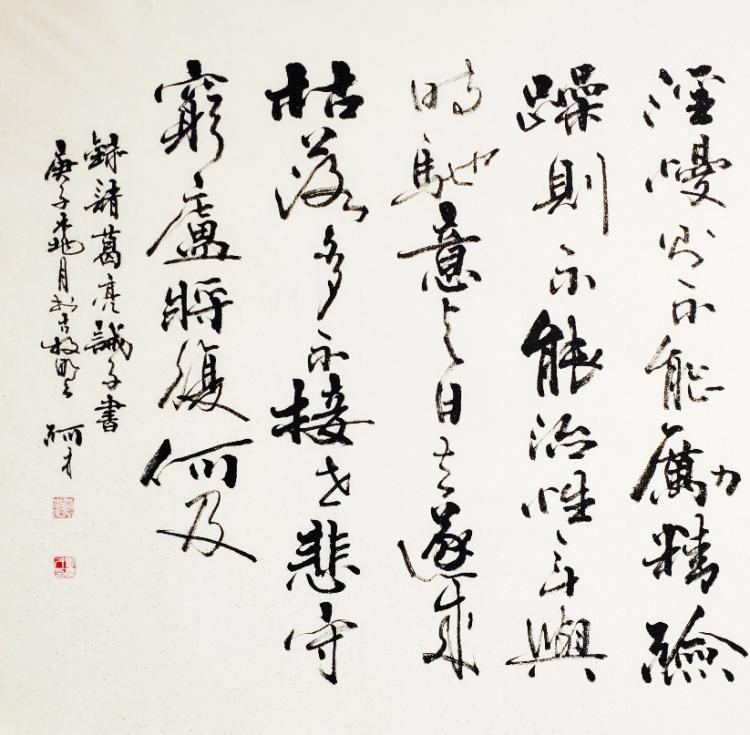 淫慢則不能勵精險
躁則不能治性年與
時馳意与日去遂成
枯落多不接世悲守
窮廬將復何及
錄諸葛亮誡子書
庚子桃月於古牧野